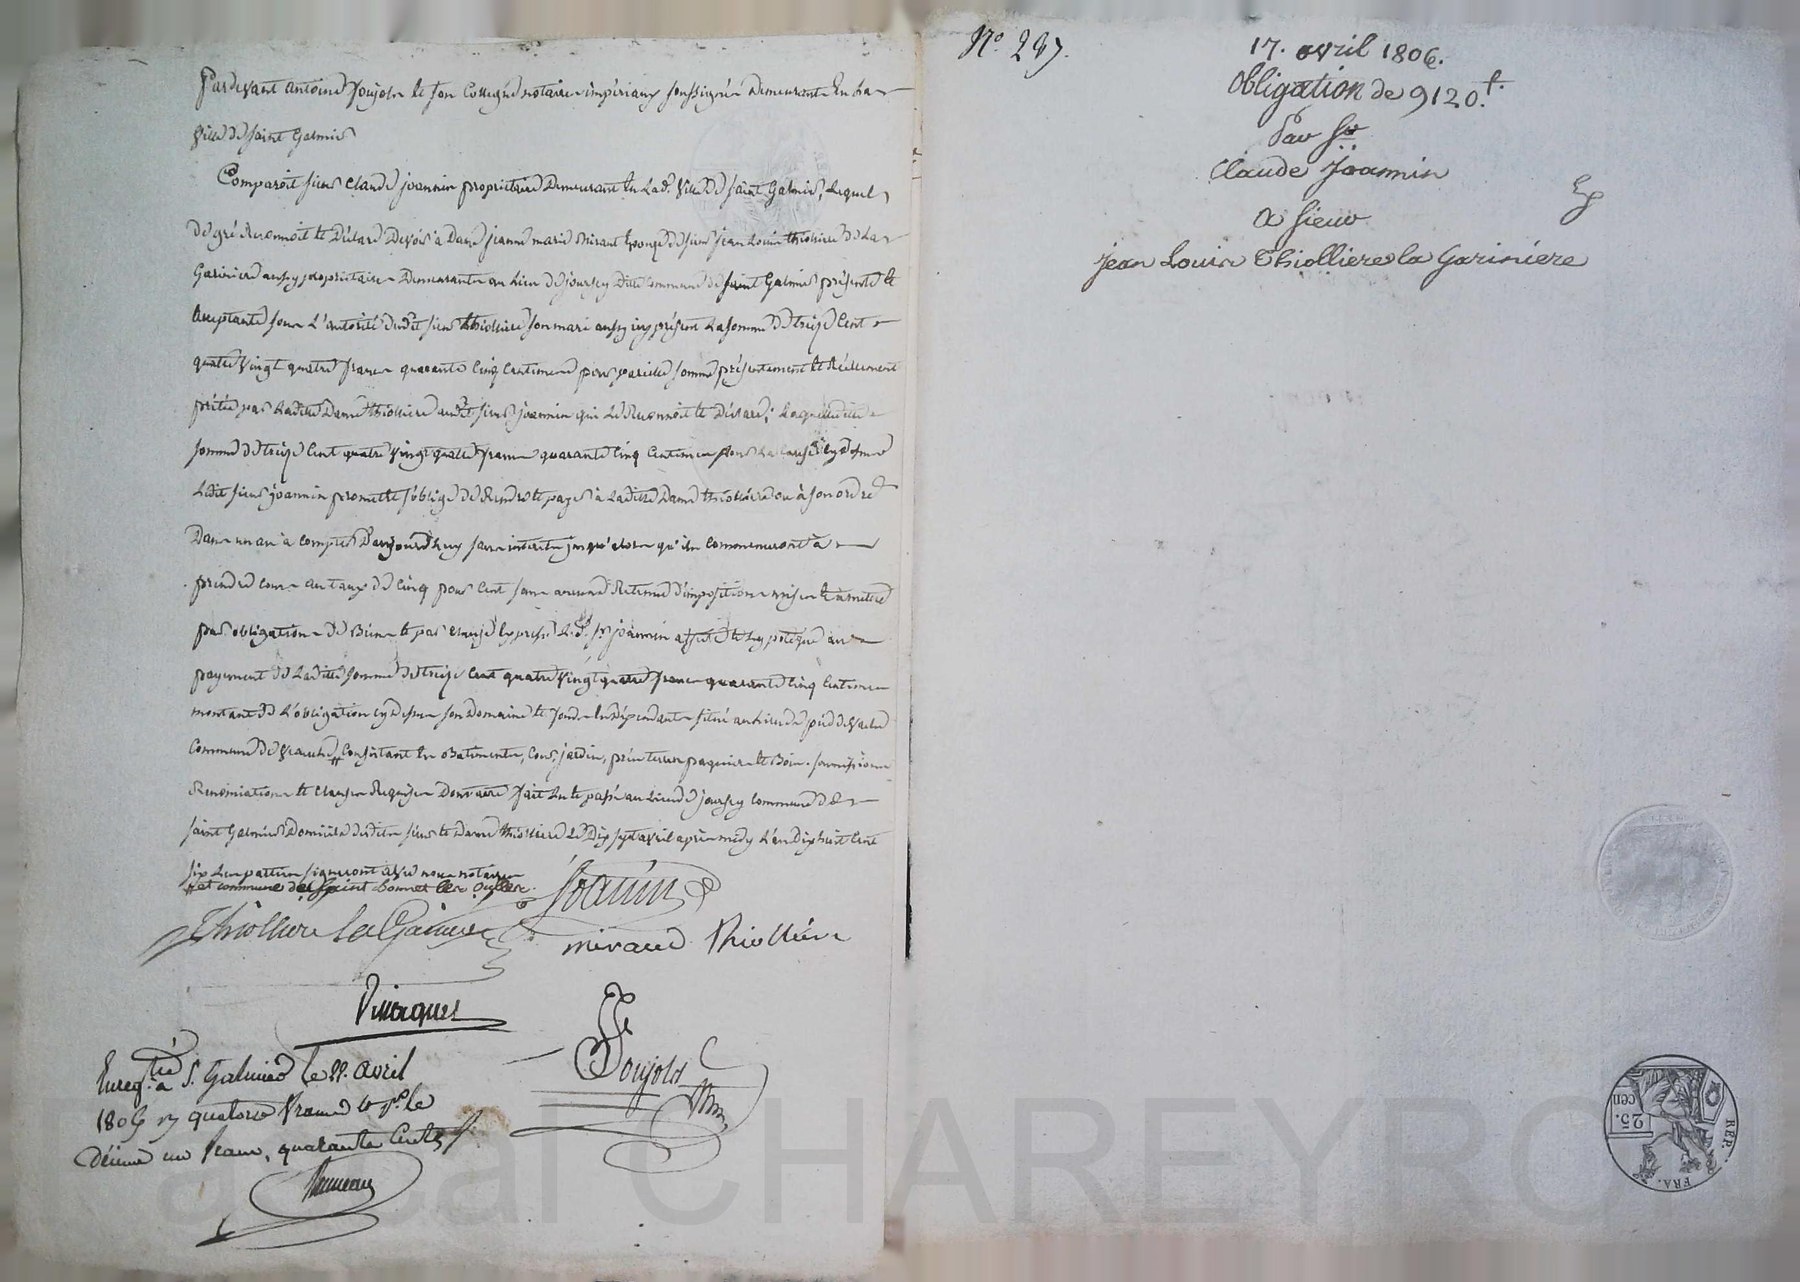 Pardevant antoine Poujols et son Collegue notaires impériaux soussignés Demeurants En La
Ville de Saint Galmier
Comparoit sieur Claude joannin proprietaire Demeurant En Lad. Ville de Saint Galmier, Lequel
de gré Reconnoit et Déclare Devoir à Dame jeanne marie mirand Epouze de sieur jean Louis thiolliere de La
Gariniere aussy proprietaire Demeurants au Lieu de joursey Ditte Commune de Saint Galmier présente et
acceptante sous L'autorité dudit sieur thiolliere son mari aussy icy présent La somme de treize Cent
quatre Vingt quatre francs quarante Cinq Centimes pour pareille somme présentement et Réellement
prétée par Laditte Dame thiolliere audit sieur joannin qui Le Reconnoit et Déclare; Laquelle ditte
somme de treize Cent quatre Vingt quatre francs quarante Cinq Centimes pour La Cause cy dessus
Ledit sieur joannin promet et s'oblige de Rendre et payer à Laditte Dame thiolliere ou à son ordre
Dans un an à Compter D'aujourd'huy sans interets jusqu'alors qu'ils Commenceront à
prendre Cours au taux de Cinq pour Cent sans aucune Retenue d'impositions mises et à mettre
par obligation de Biens et par Clause Expresse Led. Sr joannin affecte et hypotèque au
payement de Laditte somme de treize Cent quatre Vingt quatre francs quarante Cinq Centimes
montant de L'obligation cy dessus son Domaine et fonds En dépendants situé au Lieu de pied de Vache
Commune de Veauche Consistant En Batiments, Cour, jardin, prés terres paquiers et Bois. soumissions
Renonciations et Clauses Requises Dont acte fait Lu et passé au Lieu de joursey Commune de
Saint Galmier Domicile desdits sieur et Dame thiolliere Le Dix sept avril après midy L'an Dix huit Cent
six Les parties signeront avec nous notaires
et commune de Saint bonnet les Oulles.
Joanin
Thiolliere La Gariniere
mirand Thiollière
Poujols
Enregtré a St. Galmier le 22. avril
1806 rç quatorze francs et pr. le
Décime un franc, quarante Cents
No. 287.
17. avril 1806.
Obligation de 9120.f.
Par Sr
Claude Joannin
a Sieur
jean Louis Thiolliere la Gariniere
25.
cen
REP.
FRA.
CHAREYRON